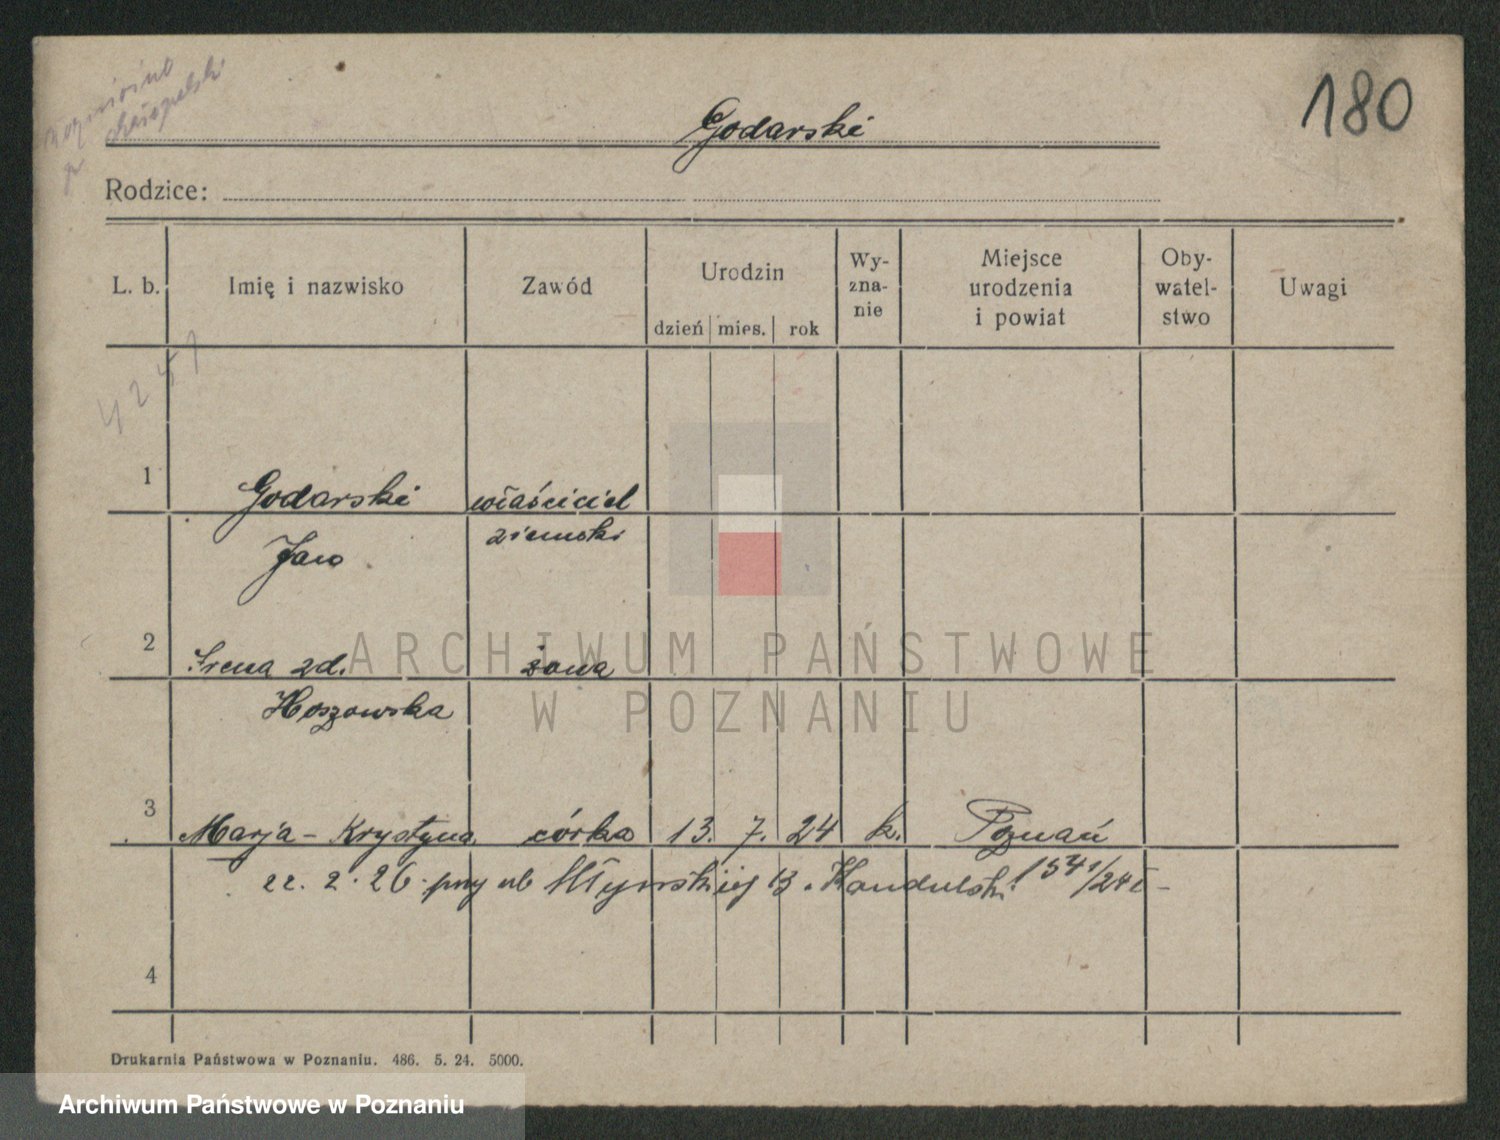 180
Godarski
Rodzice:
L. b. Imię i nazwisko Zawód Urodzin dzień mies. rok Wy-zna-nie Miejsce urodzenia i powiat Oby-watel-stwo Uwagi
4251
1 Godarski właściciel
Jan ziemski
2 Irena zd. żona
Hoszowska
3 Marja - Krystyna córka 13. 7. 24 k. Poznań
22. 2. 26. przy ul Młyńskiej 13
4
Drukarnia Państwowa w Poznaniu. 486. 5. 24. 5000.
ARCHIWUM PAŃSTWOWE
W POZNANIU
Archiwum Państwowe w Poznaniu